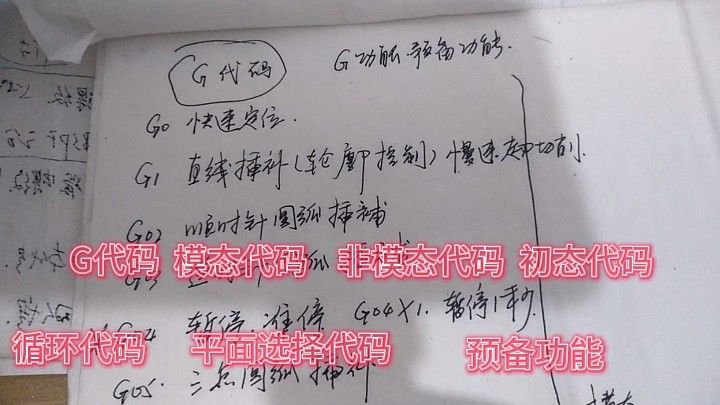 G代码 G功能.预备功能.
G0 快速定位.
G1 直线插补(轮廓控制)慢速 切削.
G02 顺时针圆弧插補
G代码 模态代码 非模态代码 初态代码
G04 暂停.准停 G04X1.暂停1秒.
循环代码 平面选择代码 预备功能
G05. 三点圆弧插补.